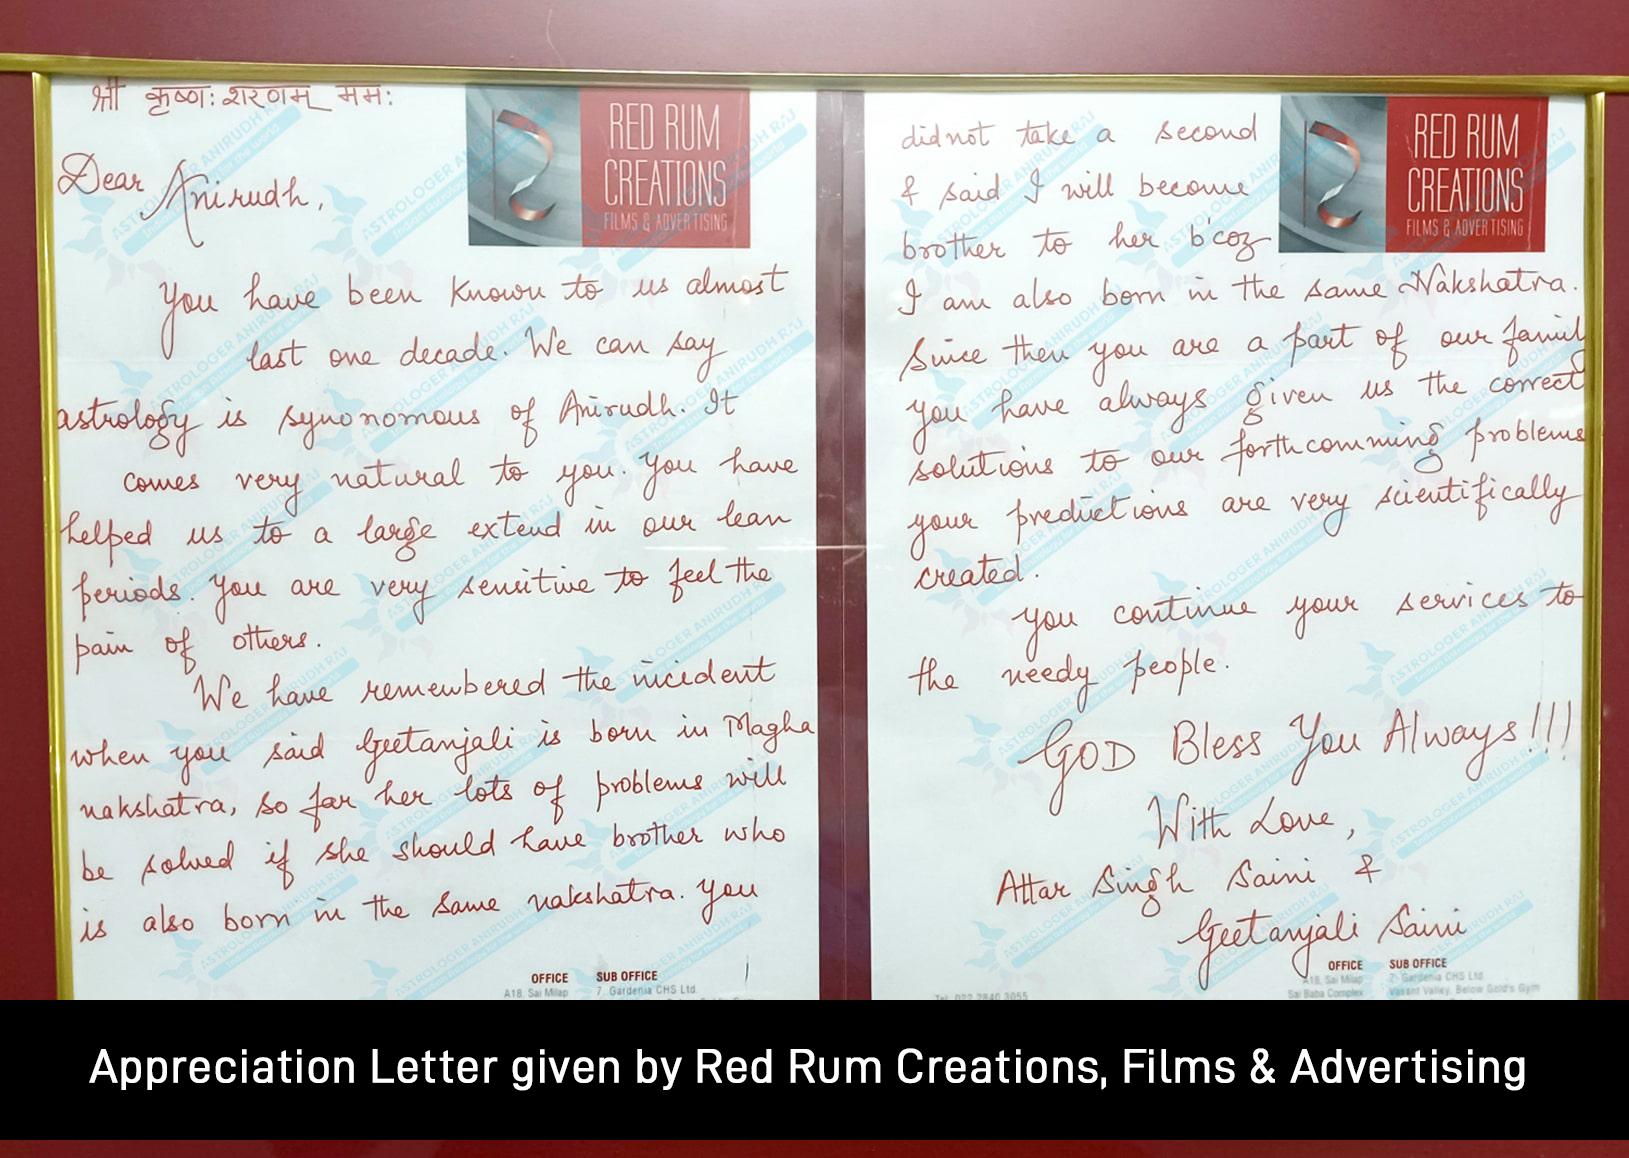 श्री कृष्णः शरणम् ममः
RED RUM
CREATIONS
FILMS & ADVERTISING
Dear Anirudh,
You have been known to us almost
last one decade. We can say
astrology is synonomous of Anirudh. It
comes very natural to you. You have
helped us to a large extend in our lean
periods. You are very sensitive to feel the
pain of others.
We have remembered the incident
when you said Geetanjali is born in Magha
nakshatra, so far her lots of problems will
be solved if she should have brother who
is also born in the same nakshatra. You
OFFICE SUB OFFICE
A18, Sai Milap 7, Gardenia CHS Ltd.
RED RUM
CREATIONS
FILMS & ADVERTISING
did not take a second
& said I will become
brother to her b'coz
I am also born in the same Nakshatra.
Since then you are a part of our family
you have always given us the correct
solutions to our forthcomming problems
your predictions are very scientifically
created.
You continue your services to
the needy people.
GOD Bless You Always!!!
With Love,
Attar Singh Saini &
Geetanjali Saini
OFFICE SUB OFFICE
A18, Sai Milap 7, Gardenia CHS Ltd.
Tel. 022 2840 3055 Sai Baba Complex Vasant Valley, Below Gold's Gym
ASTROLOGER ANIRUDH RAJ
Appreciation Letter given by Red Rum Creations, Films & Advertising